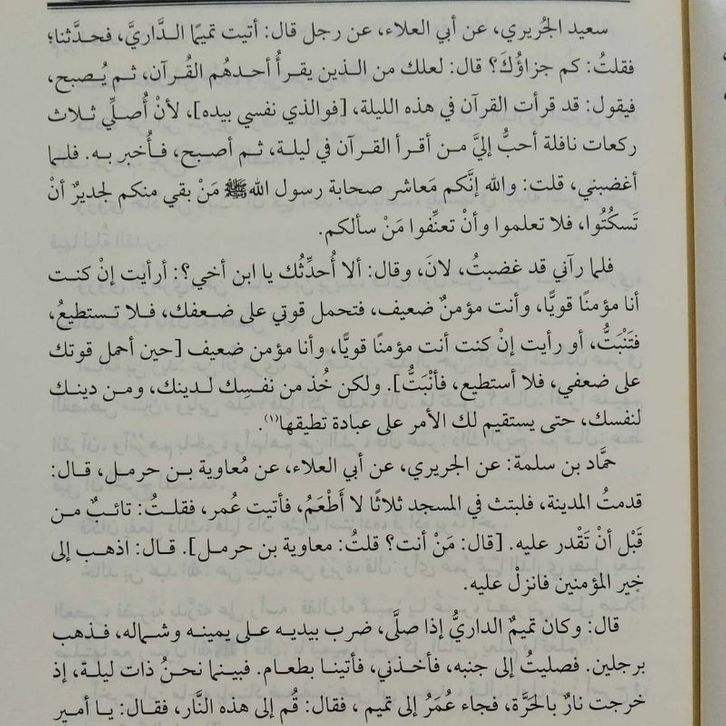 سعيد الجُريري، عن أبي العلاء، عن رجل قال: أتيت تميمًا الـدَّاريَّ، فحدَّثنا؛
فقلتُ: كم جزاؤُكَ؟ قال: لعلك من الذين يقرأُ أحدهُم القُرآن، ثم يُصبح،
فيقول: قد قرأت القرآن في هذه الليلة، [فوالذي نفسي بيده]، لأنْ أُصلِّي ثلاث
ركعات نافلة أحبُّ إليَّ من أقرأ القرآن في ليلة، ثم أصبح، فأُخبر به. فلما
أغضبني، قلت: والله إنَّكم مَعاشر صحابة رسول الله ﷺ مَنْ بقي منكم لجديرٌ أنْ
تَسكُتُوا، فلا تعلموا وأنْ تعنِّفوا مَنْ سألكم.
فلما رآني قد غضبتُ، لانَ، وقال: ألا أُحدِّثُك يا ابن أخي؟: أرأيت إنْ كنت
أنا مؤمنًا قويًّا، وأنت مؤمنٌ ضعيف، فتحمل قوتي على ضعفك، فلا تستطيعُ،
فتَنْبَتُّ، أو رأيت إنْ كنت أنت مؤمنًا قويًّا، وأنا مؤمن ضعيف [حين أحمل قوتك
على ضعفي، فلا أستطيع، فأنْبَتُّ]. ولكن خُذ من نفسِك لدينك، ومن دينك
لنفسك، حتى يستقيم لك الأمر على عبادة تطيقها(١).
حمَّاد بن سلمة: عن الجريري، عن أبي العلاء، عن مُعاوية بن حرمل، قال:
قدمتُ المدينة، فلبثت في المسجد ثلاثًا لا أَطْعَمُ، فأتيت عُمر، فقلتُ: تائبٌ من
قَبْل أنْ تَقْدر عليه. [قال: مَنْ أنت؟ قلتُ: معاوية بن حرمل]. قال: اذهب إلى
خير المؤمنين فانزلْ عليه.
قال: وكان تميمٌ الداريُّ إذا صلَّى، ضرب بيديه على يمينه وشماله، فذهب
برجلين. فصليتُ إلى جنبه، فأخذني، فأتينا بطعام. فبينما نحنُ ذات ليلة، إذ
خرجت نارٌ بالحَرَّة، فجاء عُمَرُ إلى تميم ، فقال: قُم إلى هذه النَّار، فقال: يا أمير